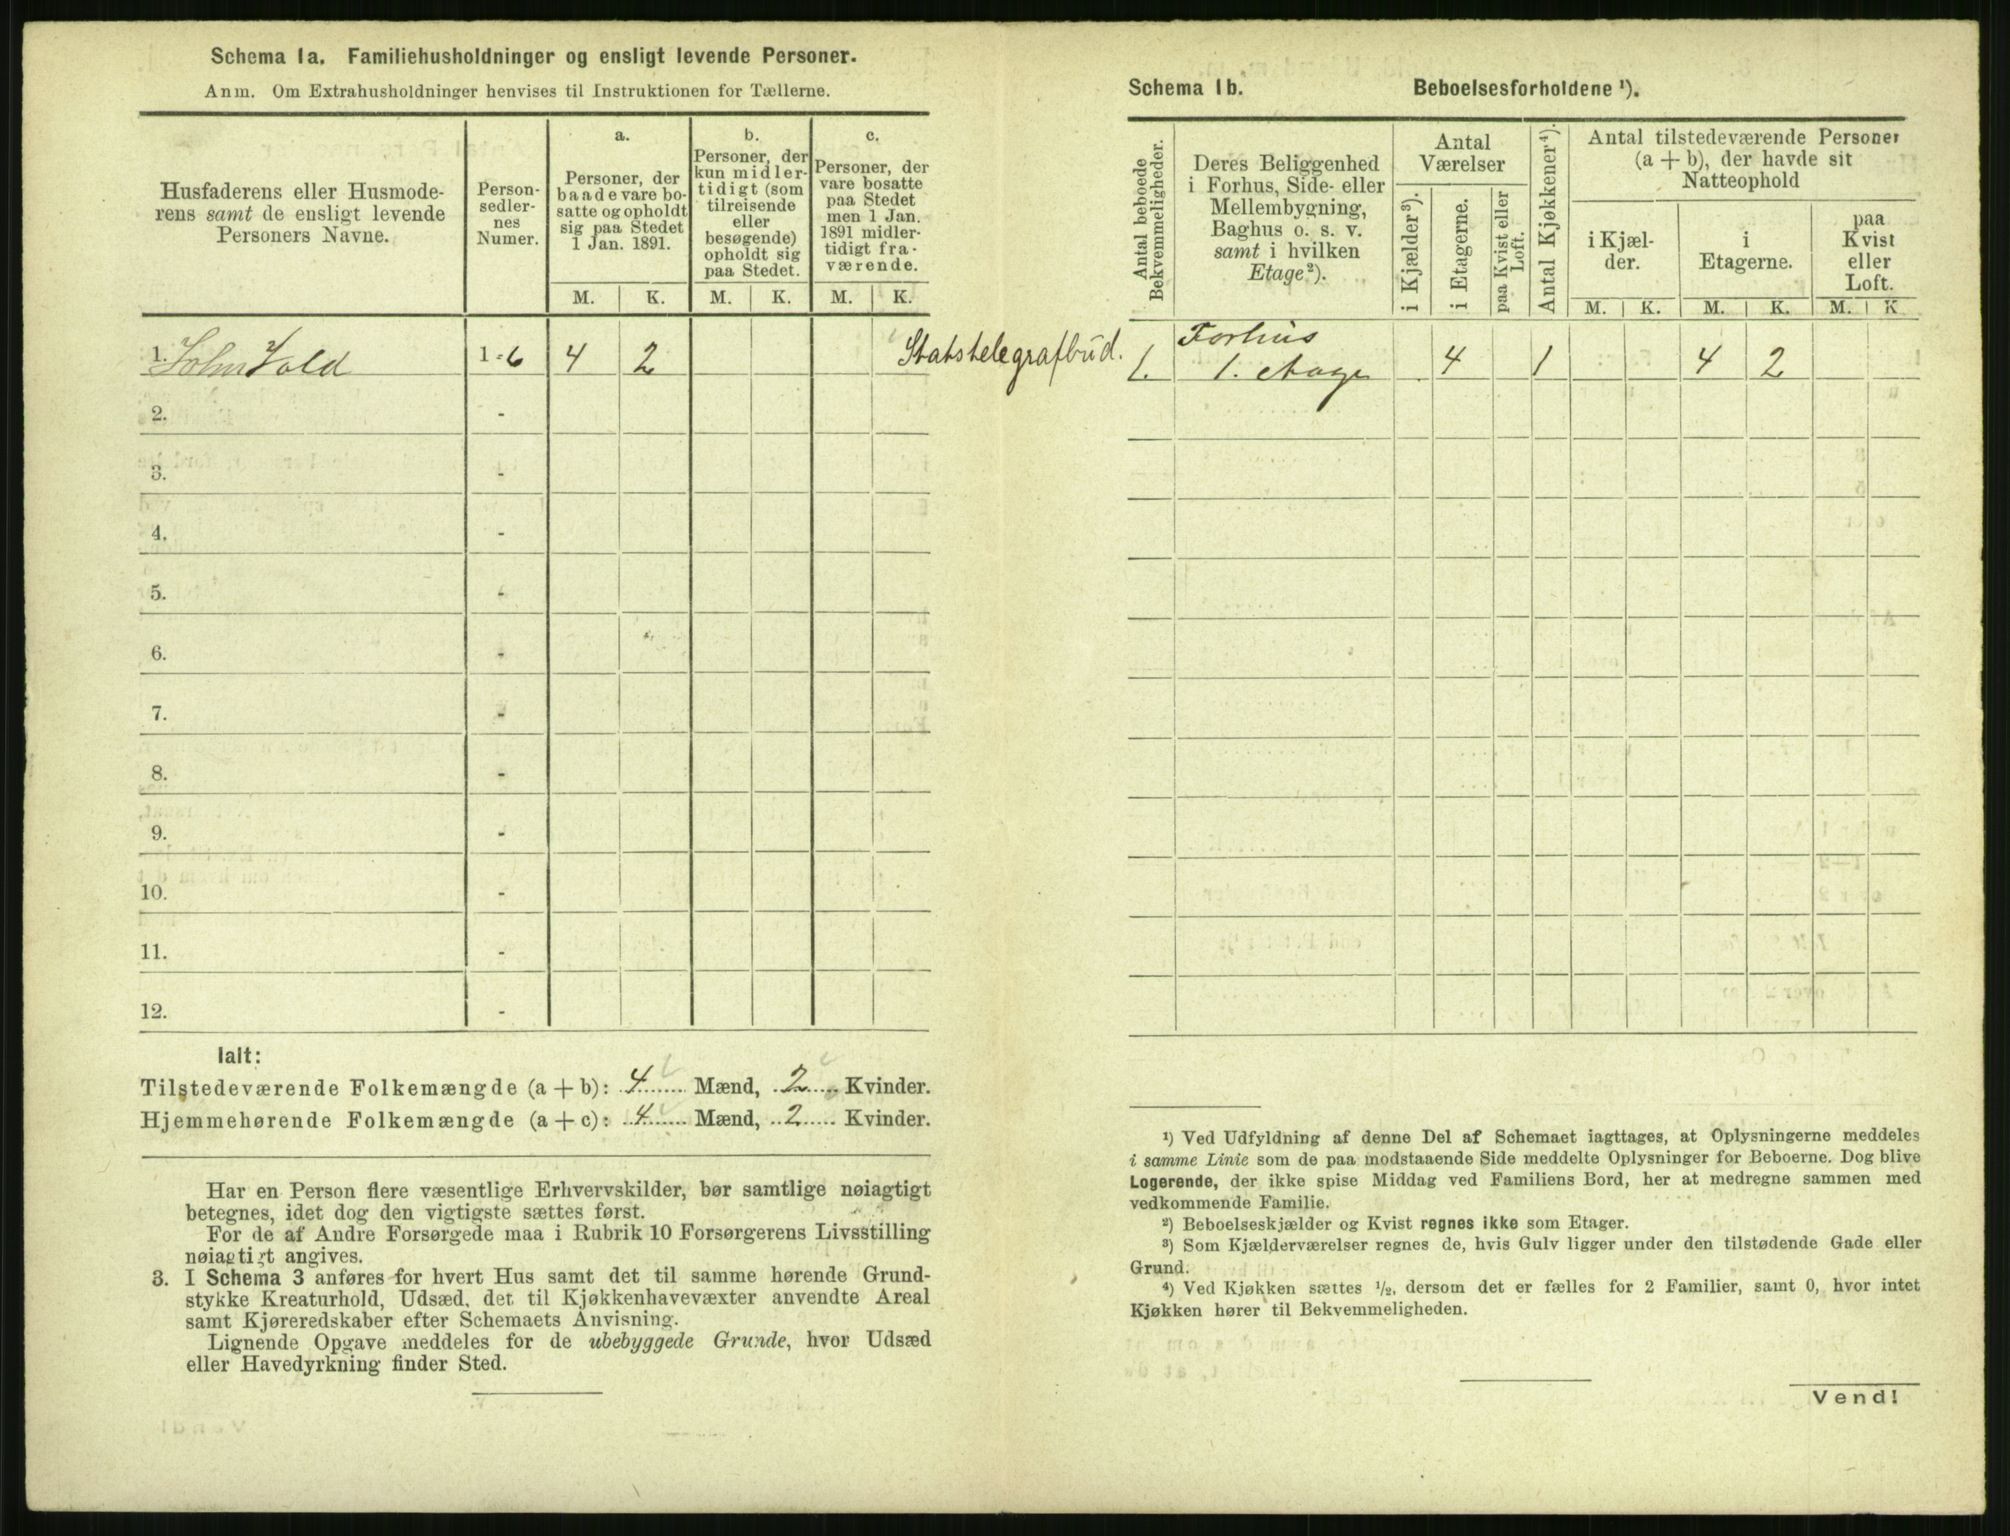 Schema 1a. Familiehusholdninger og ensligt levende Personer.
Anm. Om Extrahusholdninger henvises til Instruktionen for Tællerne.
Husfaderens eller Husmode-
rens samt de ensligt levende
Personers Navne.
Person-
sedler-
nes
Numer.
a.
Personer, der
baade vare bo-
satte og opholdt
sig paa Stedet
1 Jan. 1891.
b.
Personer, der
kun midler-
tidigt (som
tilreisende
eller
besøgende)
opholdt sig
paa Stedet.
c.
Personer, der
vare bosatte
paa Stedet
men 1 Jan.
1891 midler-
tidigt fra-
værende.
M. K. M. K. M. K.
1. John Vold 1-6 4 2 Statstelegrafbud.
2. -
3. -
4. -
5. -
6. -
7. -
8. -
9. -
10. -
11. -
12. -
Ialt:
Tilstedeværende Folkemængde (a + b): 4 Mænd, 2 Kvinder.
Hjemmehørende Folkemængde (a + c): 4 Mænd, 2 Kvinder.
Har en Person flere væsentlige Erhvervskilder, bør samtlige nøiagtigt
betegnes, idet dog den vigtigste sættes først.
For de af Andre Forsørgede maa i Rubrik 10 Forsørgerens Livsstilling
nøiagtigt angives.
3. I Schema 3 anføres for hvert Hus samt det til samme hørende Grund-
stykke Kreaturhold, Udsæd, det til Kjøkkenhavevæxter anvendte Areal
samt Kjøreredskaber efter Schemaets Anvisning.
Lignende Opgave meddeles for de ubebyggede Grunde, hvor Udsæd
eller Havedyrkning finder Sted.
Schema 1b. Beboelsesforholdene ¹).
Antal beboede
Bekvemmeligheder.
Deres Beliggenhed
i Forhus, Side- eller
Mellembygning,
Baghus o. s. v.
samt i hvilken
Etage ²).
Antal
Værelser
i Kjælder ³).
i Etagerne.
paa Kvist eller
Loft.
Antal Kjøkkener ⁴).
Antal tilstedeværende Personer
(a + b), der havde sit
Natteophold
i Kjæl-
der.
i
Etagerne.
paa
Kvist
eller
Loft.
M. K. M. K. M. K
1. Forhus
1. etage 4 1 4 2
¹) Ved Udfyldning af denne Del af Schemaet iagttages, at Oplysningerne meddeles
i samme Linie som de paa modstaaende Side meddelte Oplysninger for Beboerne. Dog blive
Logerende, der ikke spise Middag ved Familiens Bord, her at medregne sammen med
vedkommende Familie.
²) Beboelseskjælder og Kvist regnes ikke som Etager.
³) Som Kjælderværelser regnes de, hvis Gulv ligger under den tilstødende Gade eller
Grund.
⁴) Ved Kjøkken sættes ½, dersom det er fælles for 2 Familier, samt 0, hvor intet
Kjøkken hører til Bekvemmeligheden.
Vend!